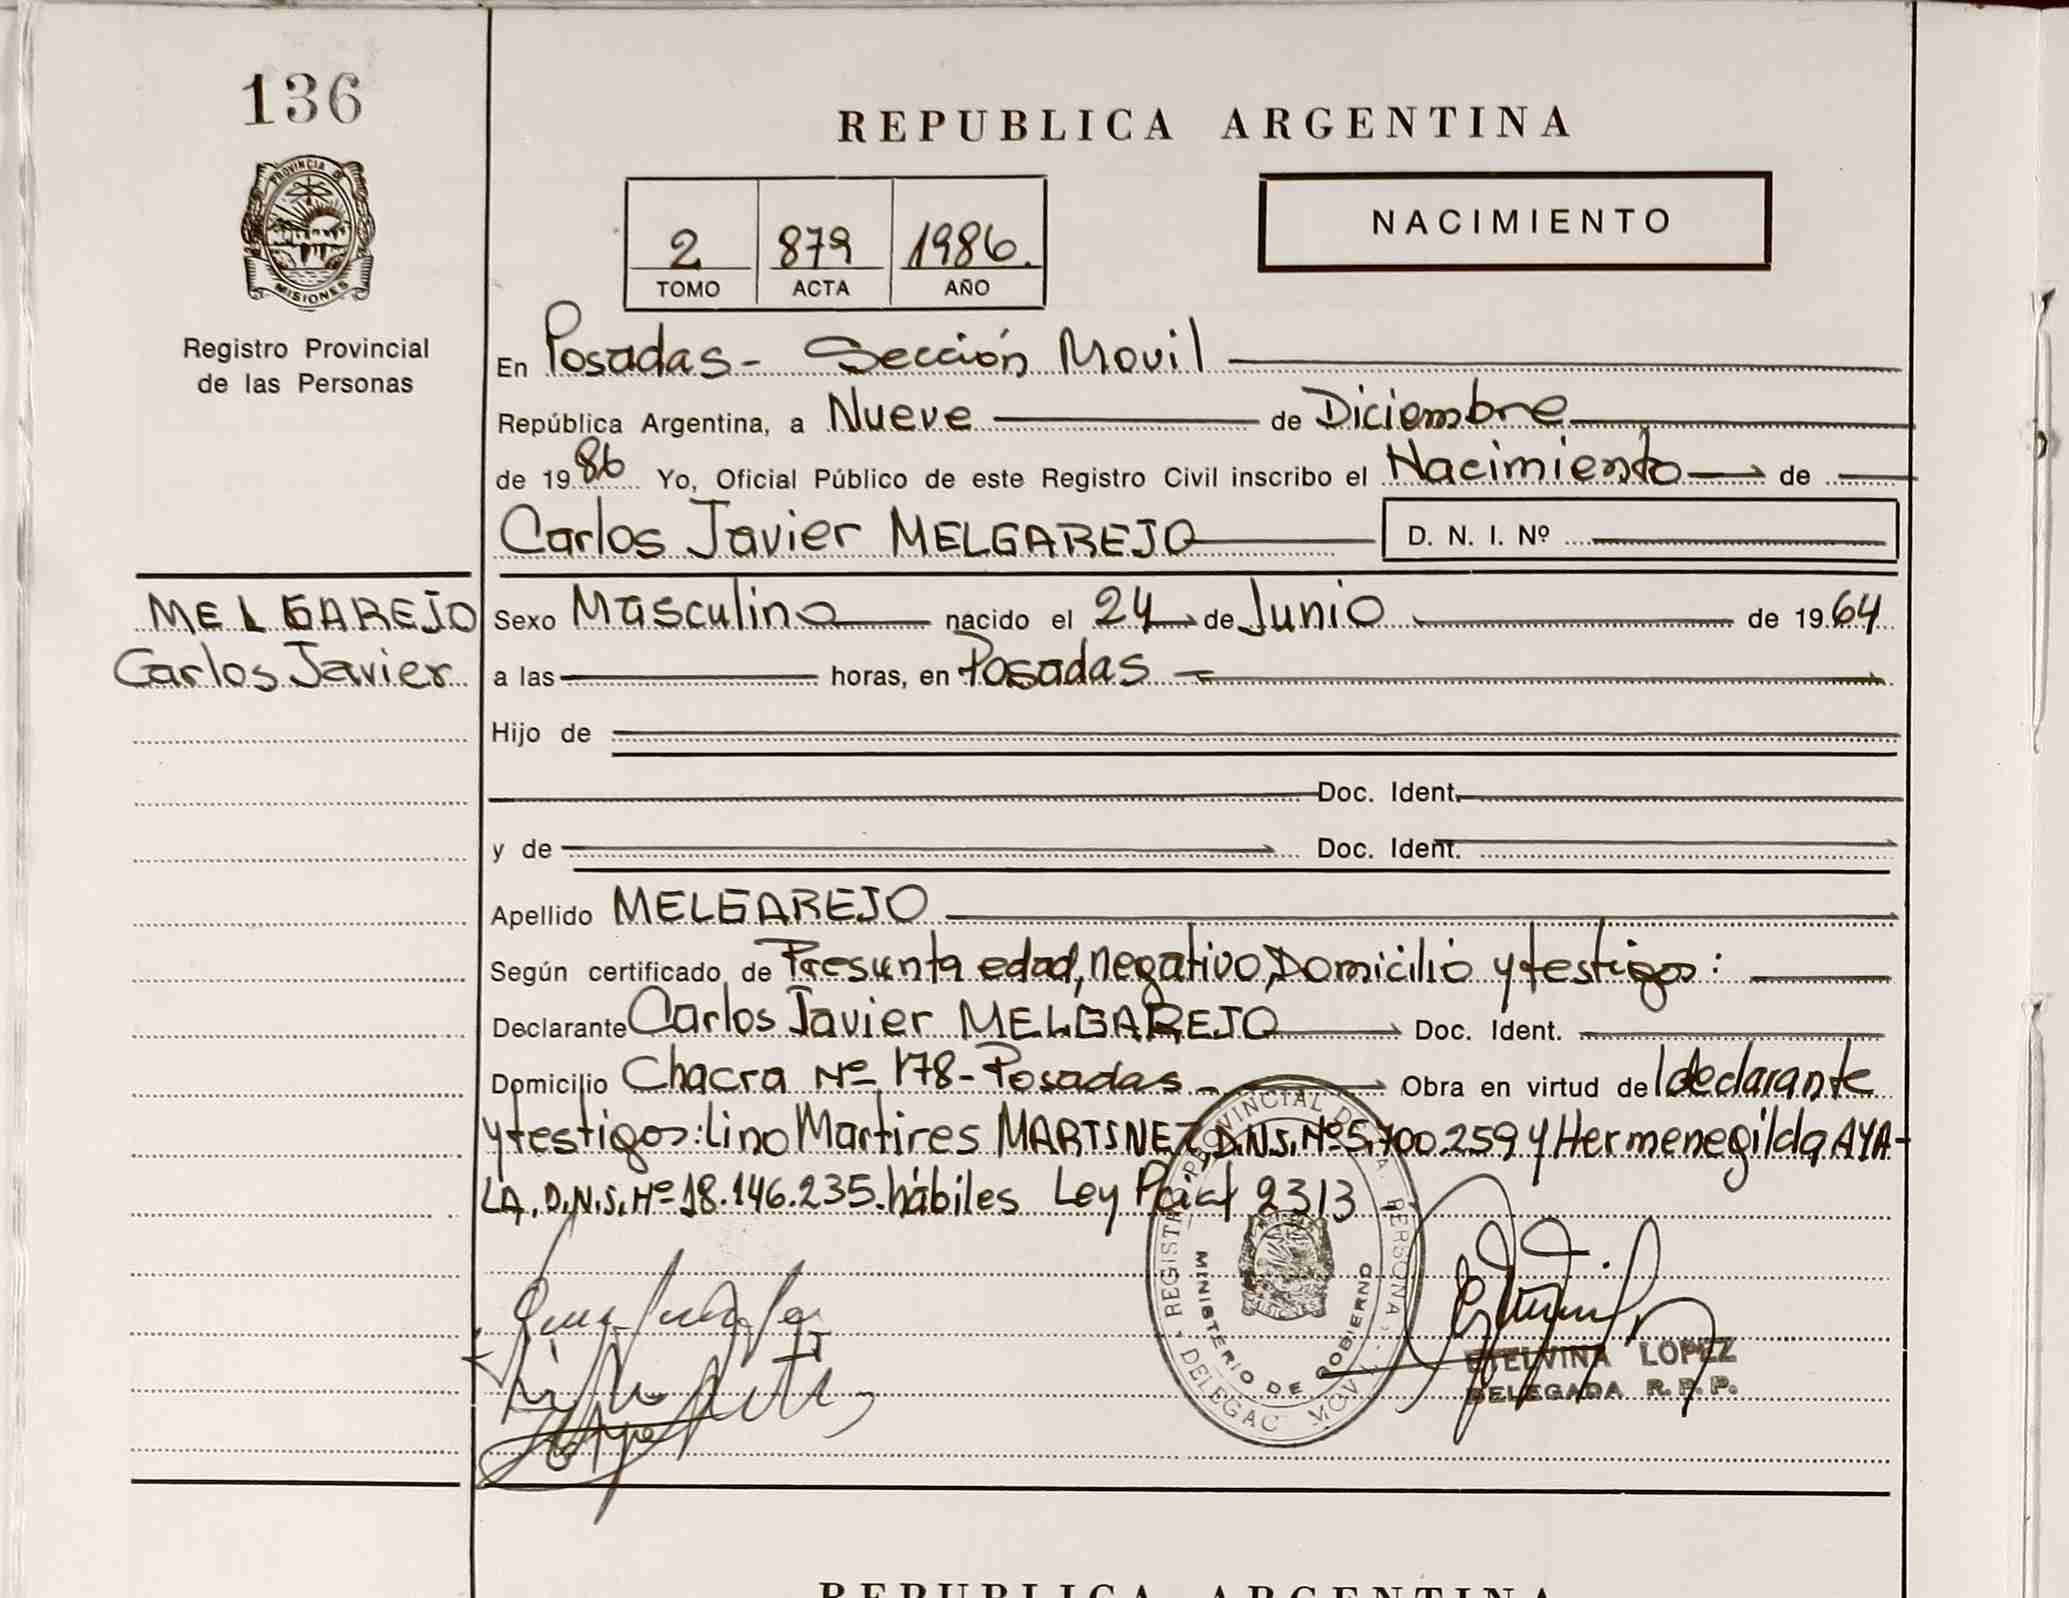 136
PROVINCIA DE
MISIONES
Registro Provincial
de las Personas
REPUBLICA ARGENTINA
NACIMIENTO
2 879 1986.
TOMO ACTA AÑO
En Posadas - Sección Movil
República Argentina, a Nueve de Diciembre
de 1986 Yo, Oficial Público de este Registro Civil inscribo el Nacimiento de
Carlos Javier MELGAREJO D. N. I. Nº
MELGAREJO
Carlos Javier
Sexo Masculino nacido el 24 de Junio de 1964
a las horas, en Posadas
Hijo de
Doc. Ident.
y de Doc. Ident.
Apellido MELGAREJO
Según certificado de Presunta edad, negativo, Domicilio y testigos:
Declarante Carlos Javier MELGAREJO Doc. Ident.
Domicilio Chacra Nº 178 - Posadas - Obra en virtud del declarante
y testigos: Lino Martires MARTINEZ, D.N.I. Nº 5.700.259 y Hermenegilda AYA-
LA, D.N.I. Nº 18.146.235. hábiles Ley Pcial 2313
REGISTRO PROVINCIAL DE PERSONA
MINISTERIO DE GOBIERNO
ETELVINA LOPEZ
DELEGADA R. P. P.
REPUBLICA ARGENTINA